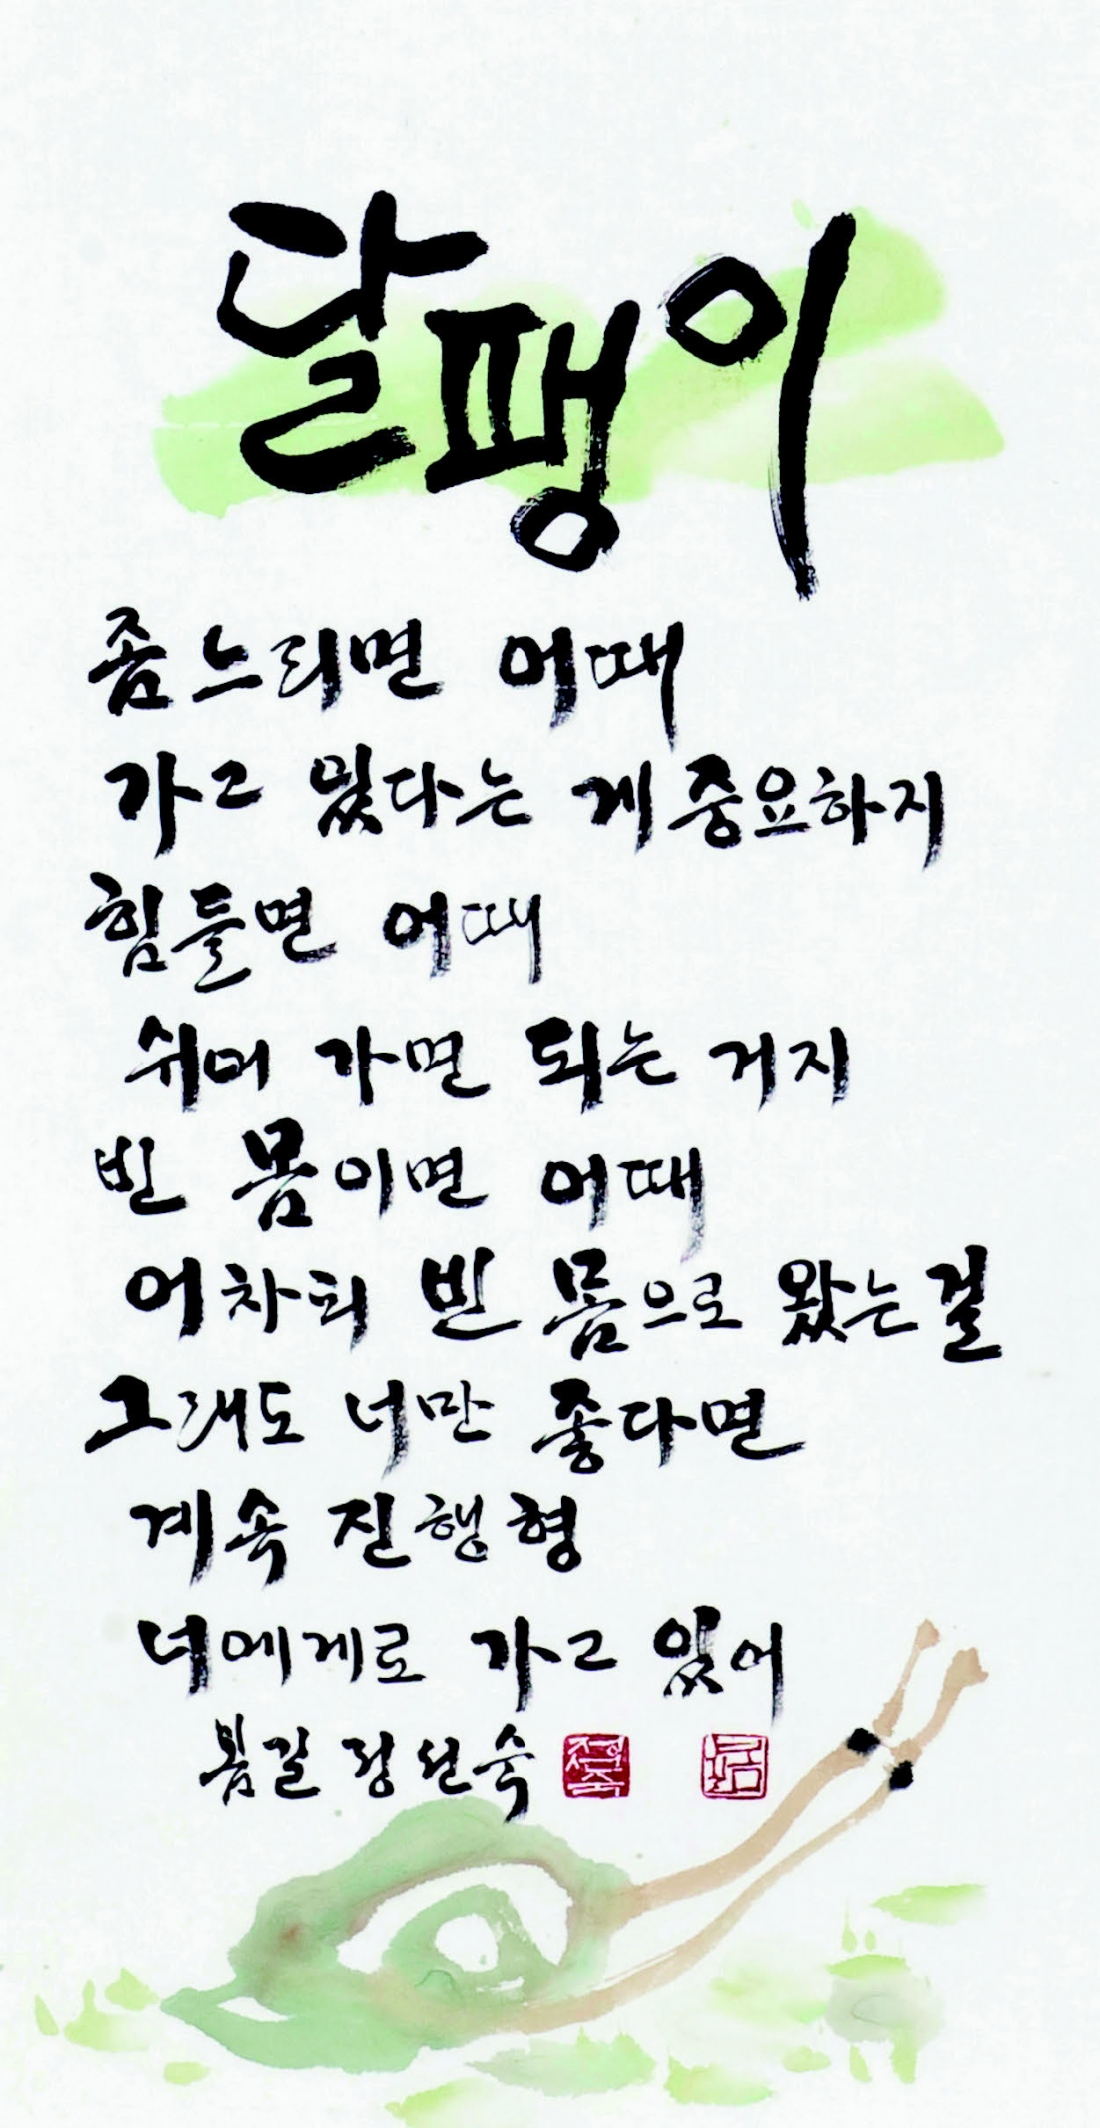 달팽이
좀 느리면 어때
가고 있다는 게 중요하지
힘들면 어때
쉬며 가면 되는 거지
빈 몸이면 어때
어차피 빈 몸으로 왔는걸
그래도 너만 좋다면
계속 진행형
너에게로 가고 있어
봄길 정선숙